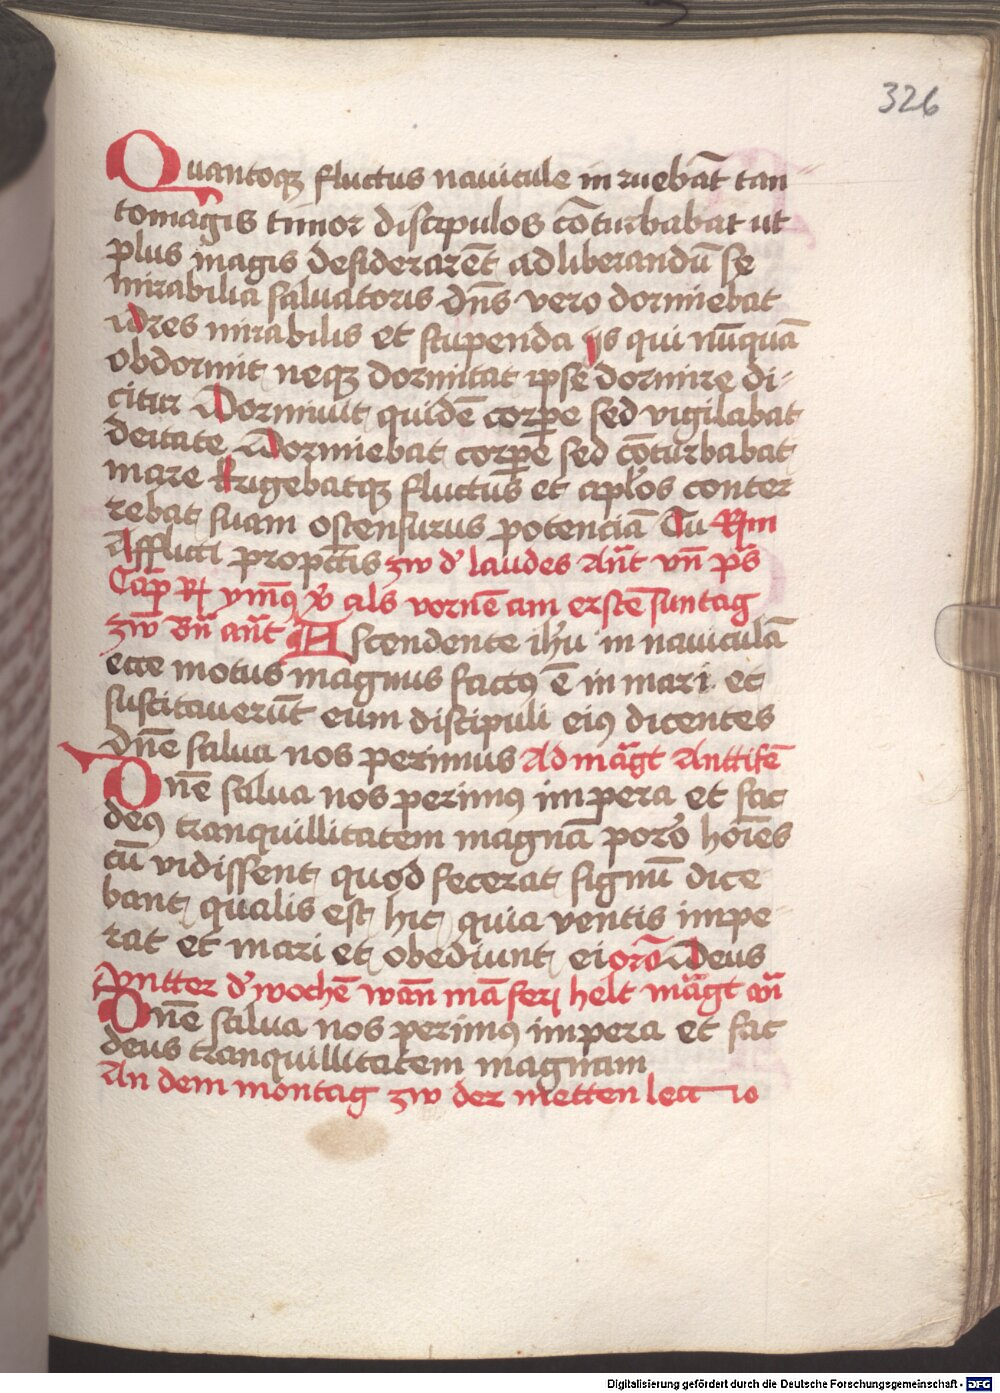 326
Quantoqꝫ fluctus nauicule in ruebāt tan
tomagis timor discipulos cōturbabat ut
plus magis desiderarēt ad liberandū se
mirabilia saluatoris dn̄s vero dormiebat
O res mirabilis et stupenda is qui nūquā
obdormit neqꝫ dormitat ipse dormire di-
citur Dormiuit quidē corꝑe sed vigilabat
deitate Dormiebat corꝑe sed cōturbabat
mare Erigebatqꝫ fluctus et apl̄os conter
rebat suam ostensurus potenciā Tu Rm̄
Afflicti ꝓpct̄is zw d' laudes Ant̄ vn̄ ps̄
Cap̄ R̷ ym̄9 v̊ als vornē am erstē suntag
zw Bn̄ ant̄ Ascendente ih̄u in nauiculā
ecce motus magnus factꝰ ē in mari et
suscitauerūt eum discipuli eiꝰ dicentes
dn̄e salua nos perimus Ad māgt Anttifē
Dn̄e salua nos perimꝰ impera et fac
deꝰ tranquillitatem magnā porro hoīes
cū vidissent quod fecerat signū dice
bant qualis est hic quia ventis impe-
rat et mari et obediunt ei orō Deus
Vntter d' wochē wān mā ferj helt māgt an̄
Dn̄e salua nos perimꝰ impera et fac
deus tranquillitatem magnam
An dem montag zw der metten lectio
Digitalisierung gefördert durch die Deutsche Forschungsgemeinschaft - DFG